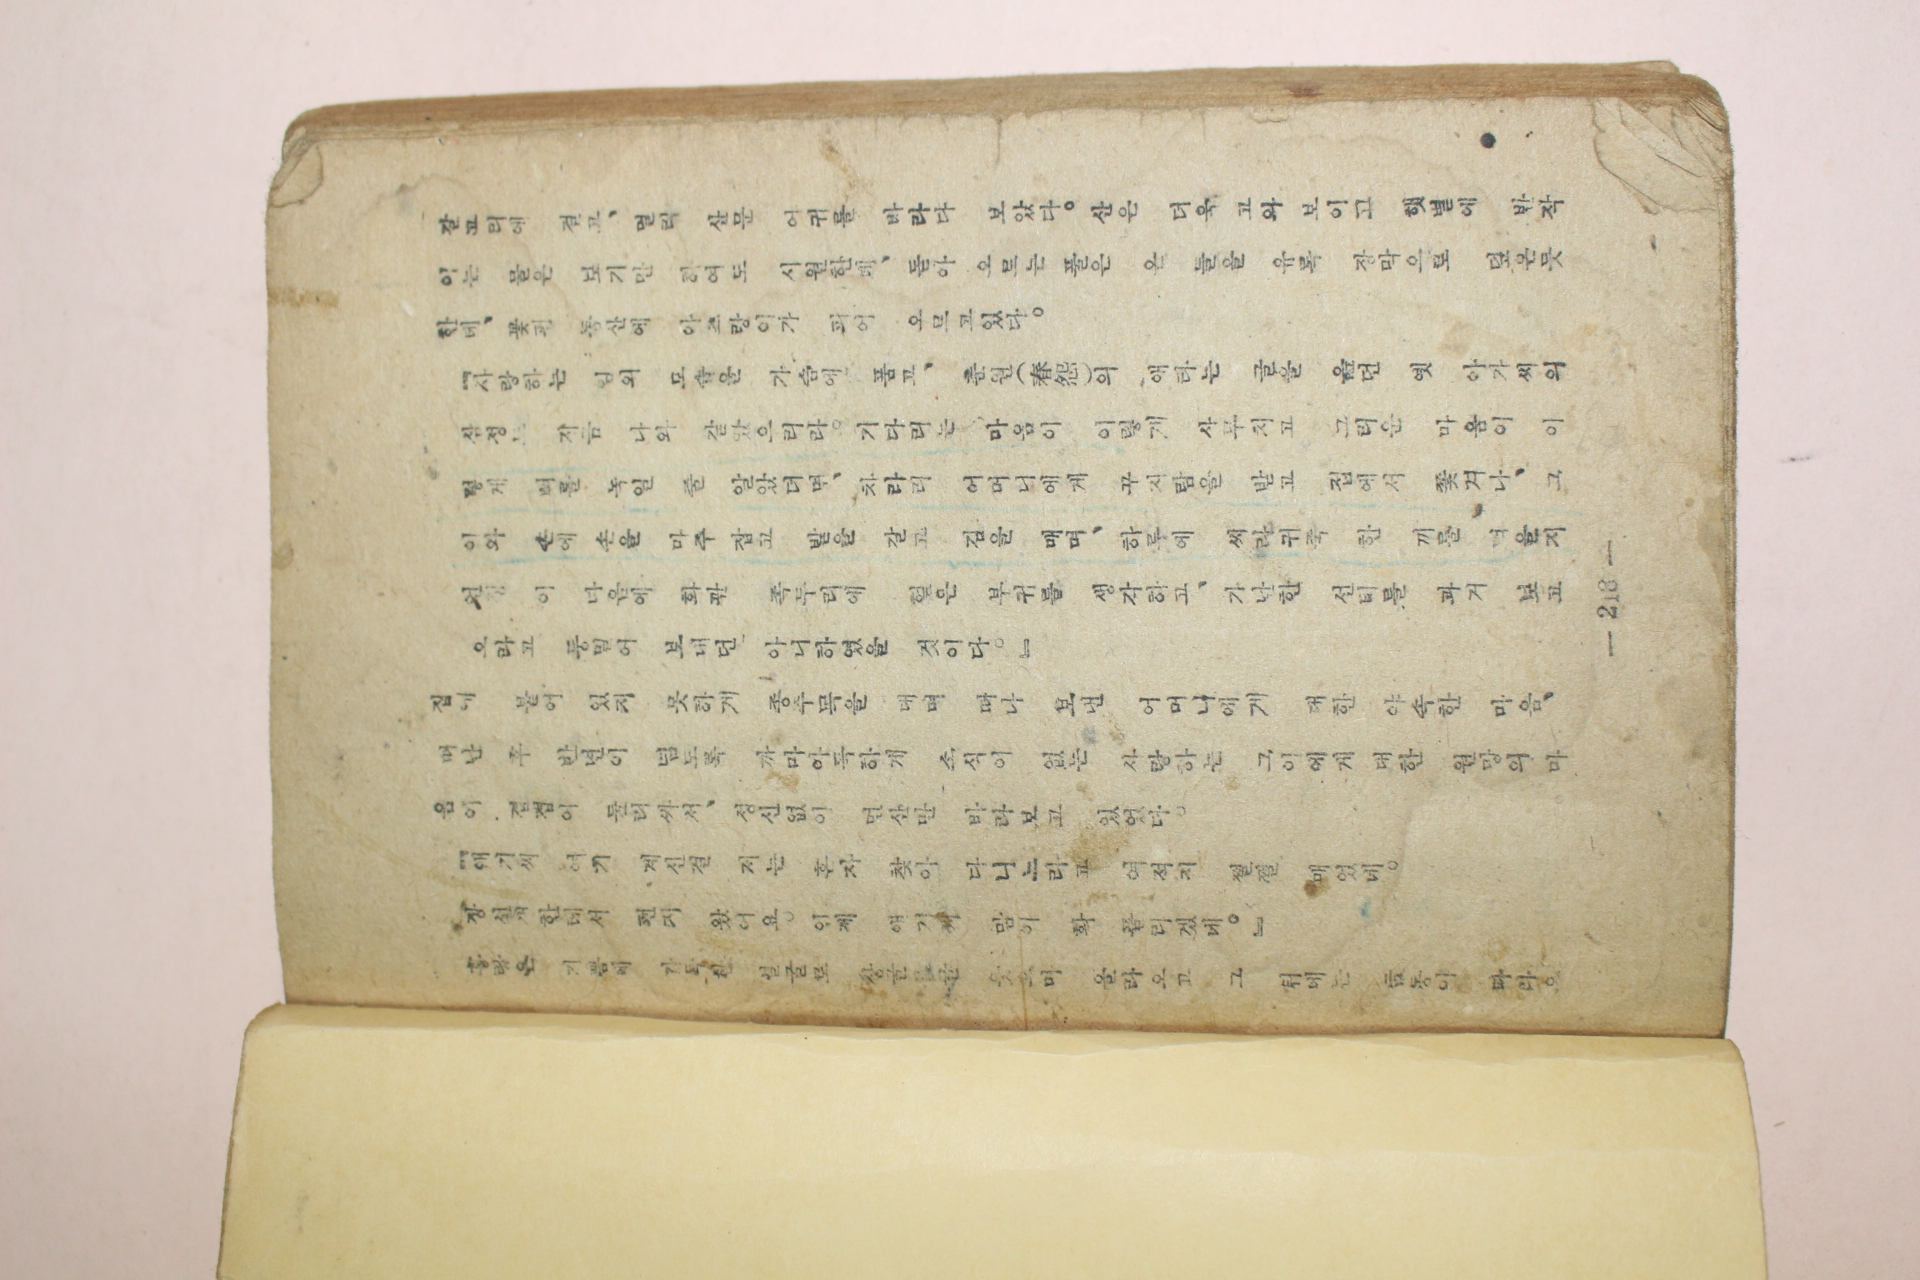 갈고리에 걸고、멀리 산문 어귀를 바라다 보았다。산은 더욱 고와 보이고 햇볕에 반작
이는 물은 보기만 하여도 시원한데、돋아 오르는 풀은 온 들을 유록 장막으로 덮은듯
한데、꽃핀 동산에 아즈랑이가 피어 오르고있다。
『사랑하는 님의 모습을 가슴에 품고、춘원(春怨)의 애타는 글을 읊던 옛 아가씨의
심정도 지금 나와 같았으리라。기다리는 마음이 이렇게 사무치고 그리운 마음이 이
렇게 뼈를 녹일 줄 알았더면、차라리 어머니에게 꾸지람을 받고 집에서 쫓겨나、그
이와 손에 손을 마주 잡고 밭을 갈고 김을 매며、하루에 씨라귀죽 한 끼를 먹을지
언정 이 다음에 화관 족두리에 얻은 부귀를 생각하고、가난한 선비를 과거 보고
오라고 등밀어 보내던 아니하였을 것이다。』
집에 붙어 있지 못하게 종주목을 대며 떠나 보낸 어머니에게 대한 야속한 마음、
떠난 후 반년이 넘도록 까마아득하게 소식이 없는 사랑하는 그이에게 대한 원망의 마
음이 겹겹이 둘러싸서、정신없이 먼산만 바라보고 있었다。
『애기씨 여기 계신걸 저는 혼자 찾아 다니느라고 여적지 쩔쩔 매었네。
장선개한데서 편지 왔어요。인제 애기씨 맘이 확 풀리겠네。』
홍랑은 기쁨에 가득찬 얼굴로 상글상글 웃으며 올라오고 그 뒤에는 금동이 따라。
— 213 —